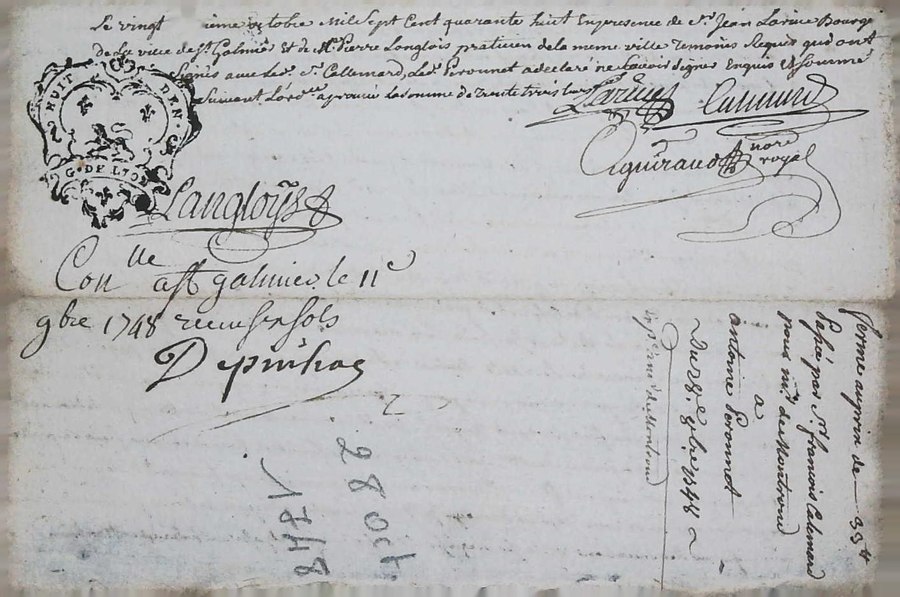 Le vingt ieme octobre Mil Sept Cent quarante huit En presence de Sr. Jean Larive Bourge
de la ville de St. Galmier Et de Me. Pierre Langlois praticien de la meme ville Temoins Requis qui ont
signés avec led. Sr. Callemard, Led. Peronnet a declaré ne savoir signer Enquis Et sommé
suivant Lord.ce aprouvé la somme de trente trois
HUIT DEN
G. DE LYON
Larive Callemard
Aguiraud nore royal
Langloys
Conlle a St galmier le 11e
9bre 1748 recu six sols
Depinhac
2
ferme au prix de 33tt
Passée par Sr. francois Calemard
pour mr. de Montrond
a
antoine Peronnet
Du 28e 8bre 1748
1748
2082